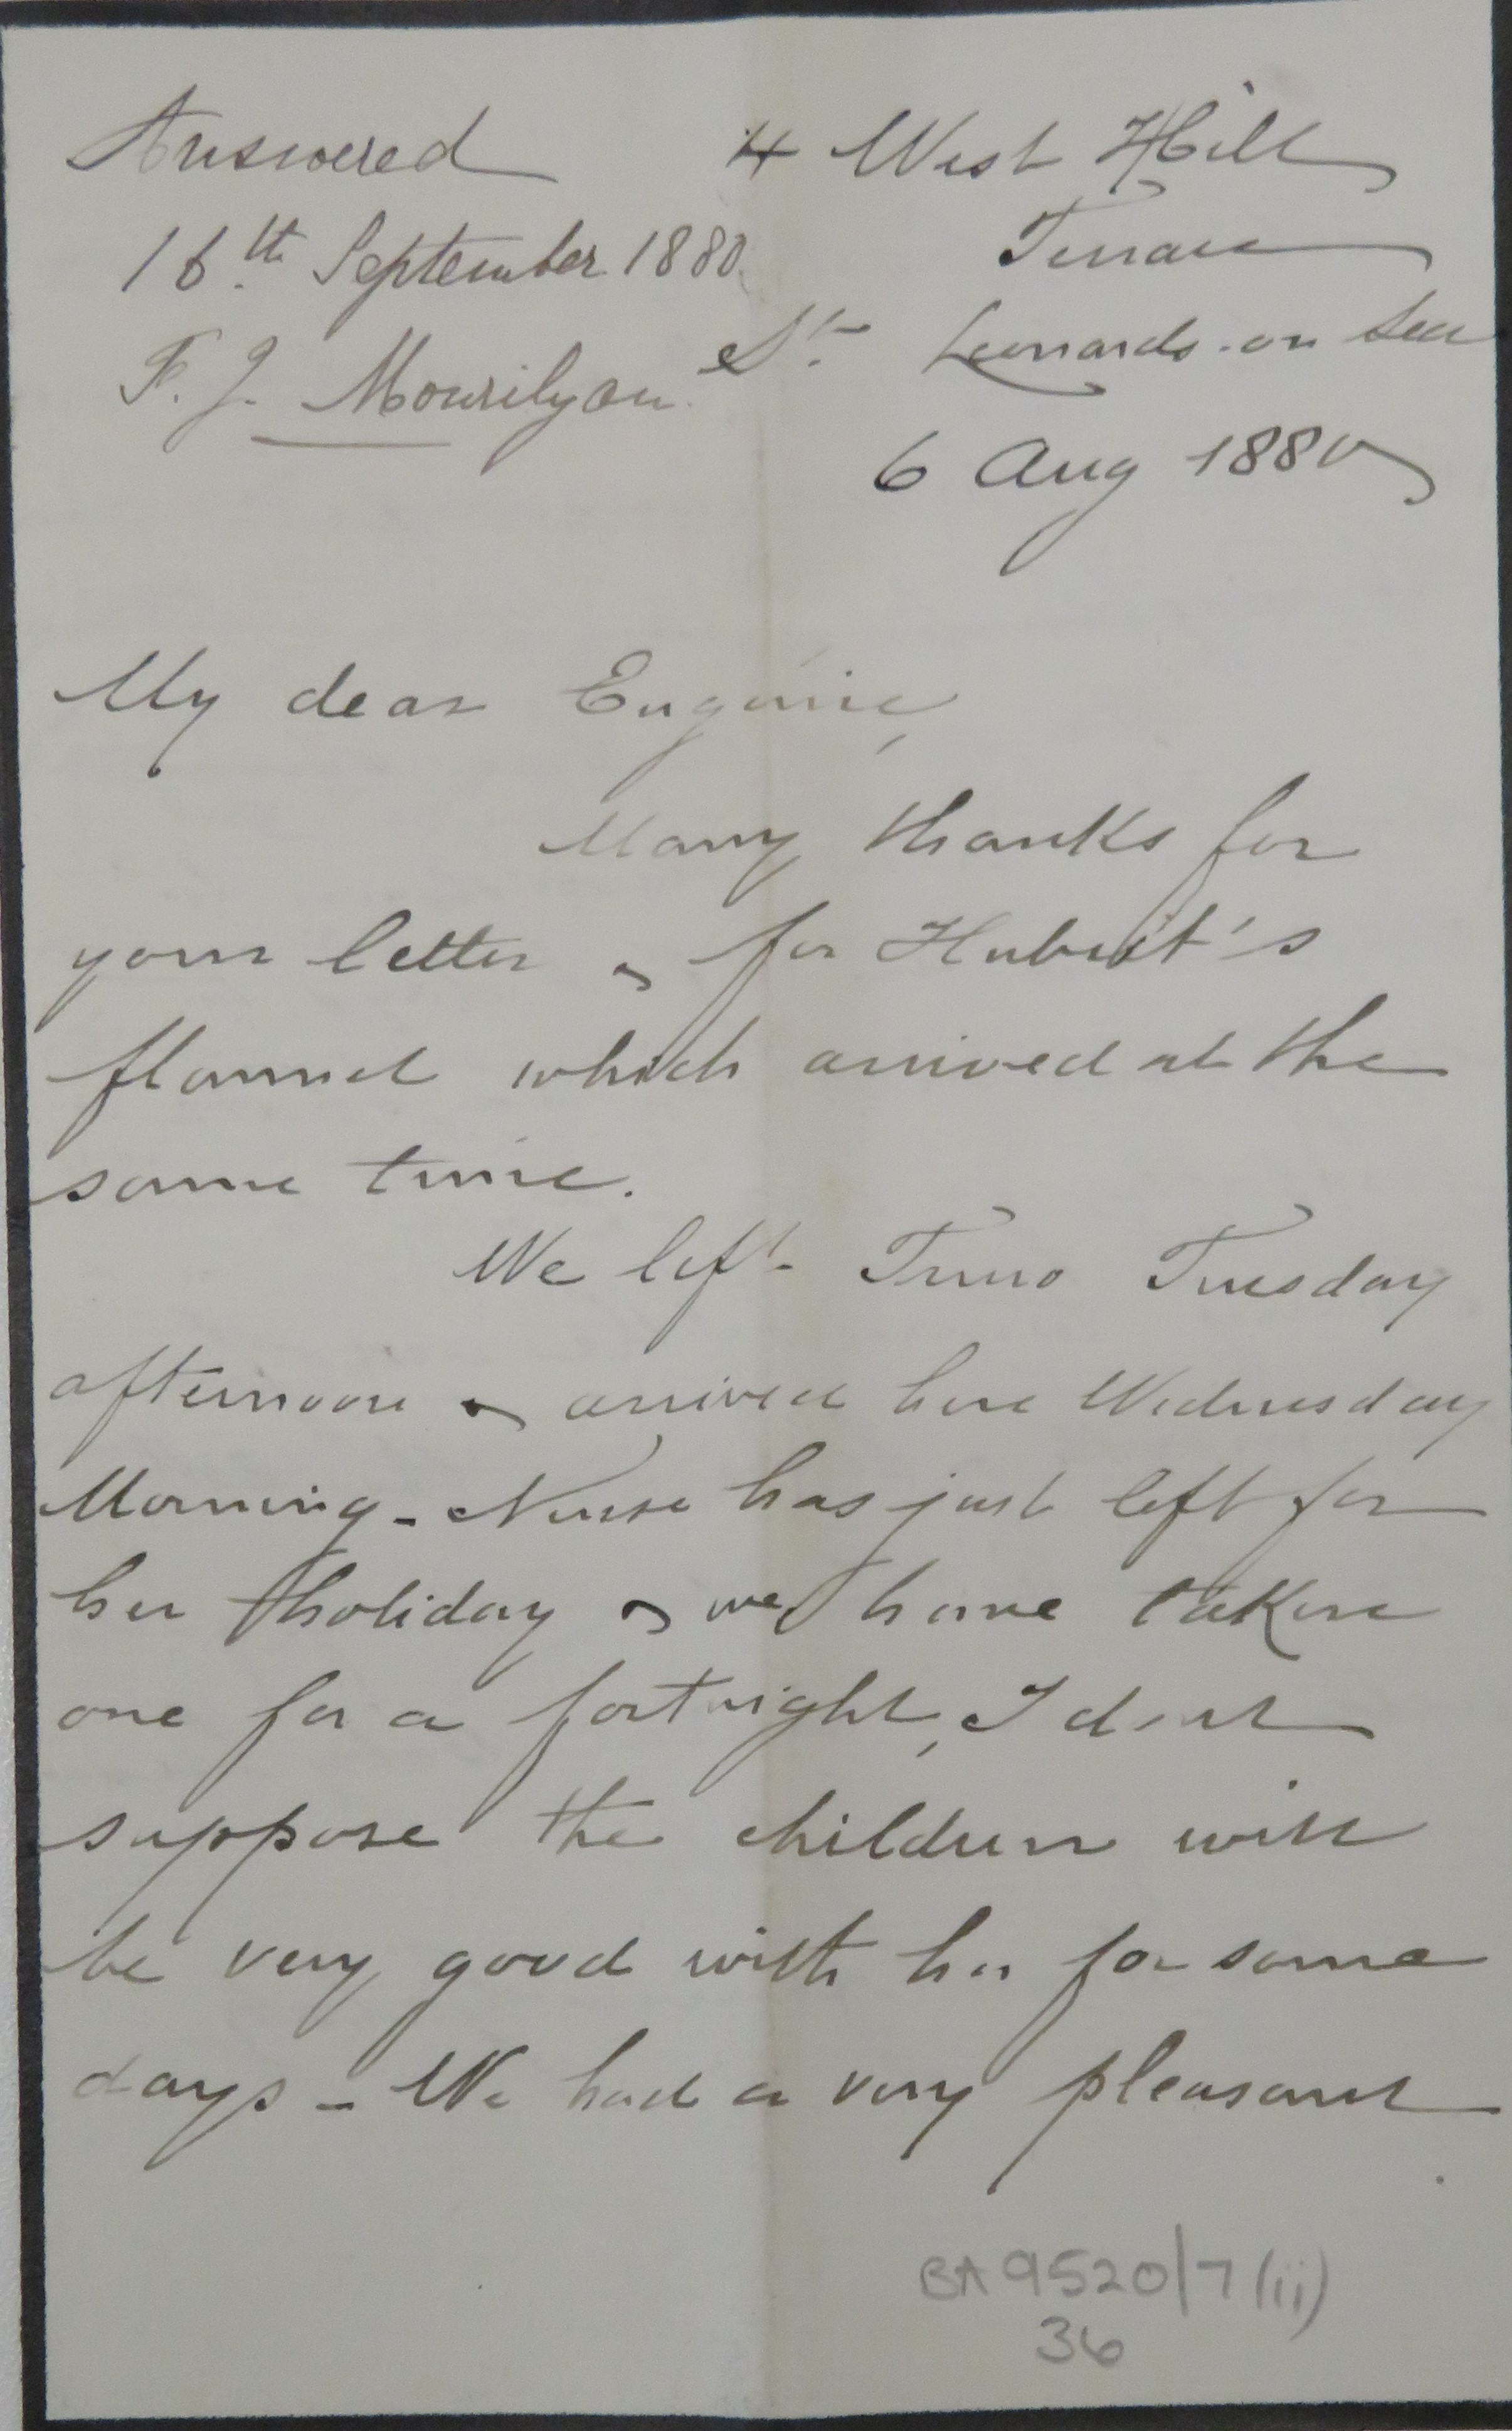 Answered
16th September 1880
F. J. Mourilyan
4 West Hill
Terrace
St. Leonards-on Sea
6 Aug 1880
My dear Eugenie,
Many thanks for
your letter & for Hubert's
flannel which arrived at the
same time.
We left Truro Tuesday
afternoon & arrived here Wednesday
Morning - Nurse has just left for
her holiday & we have taken
one for a fortnight, I dont
suppose the children will
be very good with her for some
days - We had a very pleasant
BA 9520/7(ii)
36